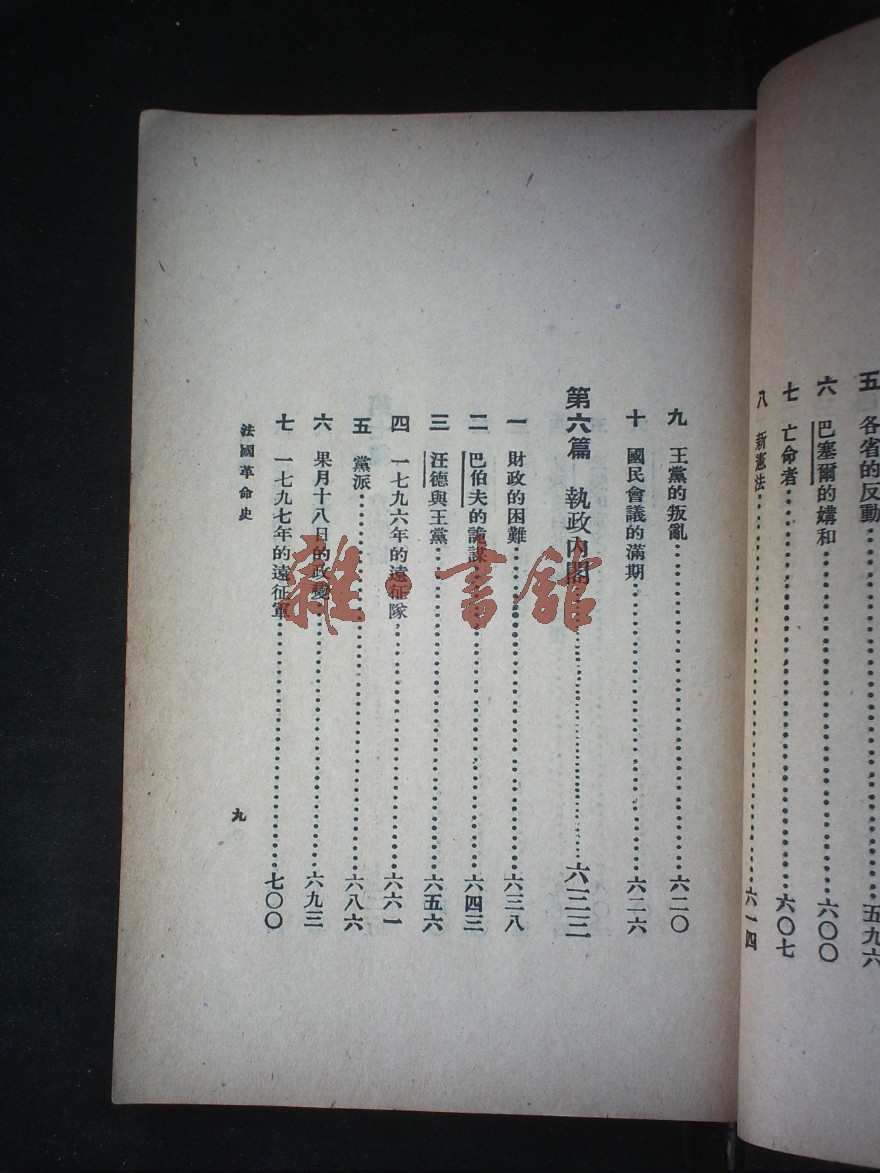 五 各省的反動……………………五九六
六 巴塞爾的媾和……………………六〇〇
七 亡命者……………………六〇七
八 新憲法……………………六一四
九 王黨的叛亂……………………六二〇
十 國民會議的滿期……………………六二六
第六篇 執政內閣……………………六三三
一 財政的困難……………………六三八
二 巴伯夫的詭謀……………………六四三
三 汪德與王黨……………………六五六
四 一七九六年的遠征隊……………………六六一
五 黨派……………………六八六
六 果月十八日的政變……………………六九三
七 一七九七年的遠征軍……………………七〇〇
法國革命史 九
雜·書館